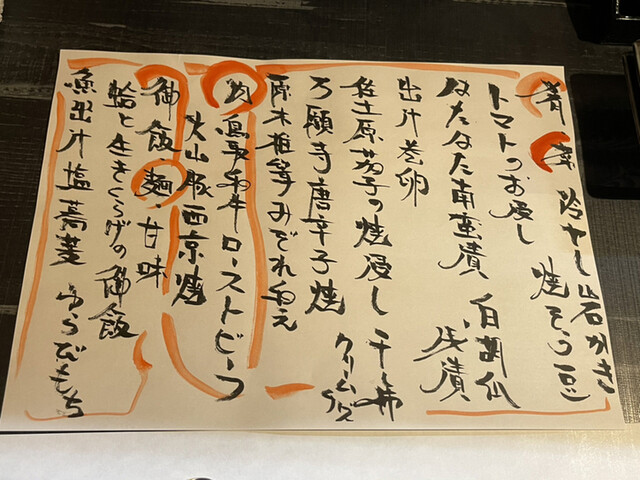 肴 菜 冷やし岩がき
焼そら豆
トマトのお浸し
はたはた南蛮漬 白胡瓜
浅漬
出汁巻卵
佐土原茄子の焼浸し 干し柿
クリームチーズ
万願寺唐辛子焼
原木椎茸みぞれ和え
肉 鳥取和牛ローストビーフ
大山豚西京焼
御飯、麺、甘味
と生きくらげの御飯
魚出汁塩蕎麦 わらびもち